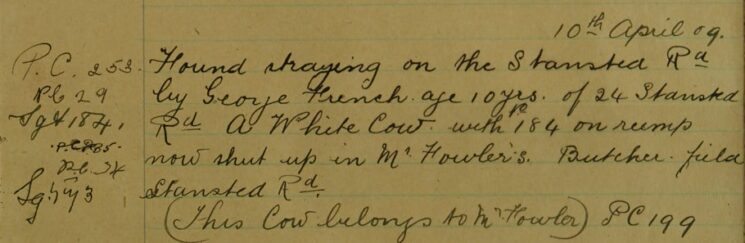 10th April 09.
P.C. 253. Found straying on the Stansted Rd
Pc 29 by George French. age 10 yrs. of 24 Stansted
Sgt 184, Rd A White Cow. with 184 on rump
now shut up in Mr Fowler's. Butcher. field
Stansted Rd.
(This Cow belongs to Mr Fowler) PC 199